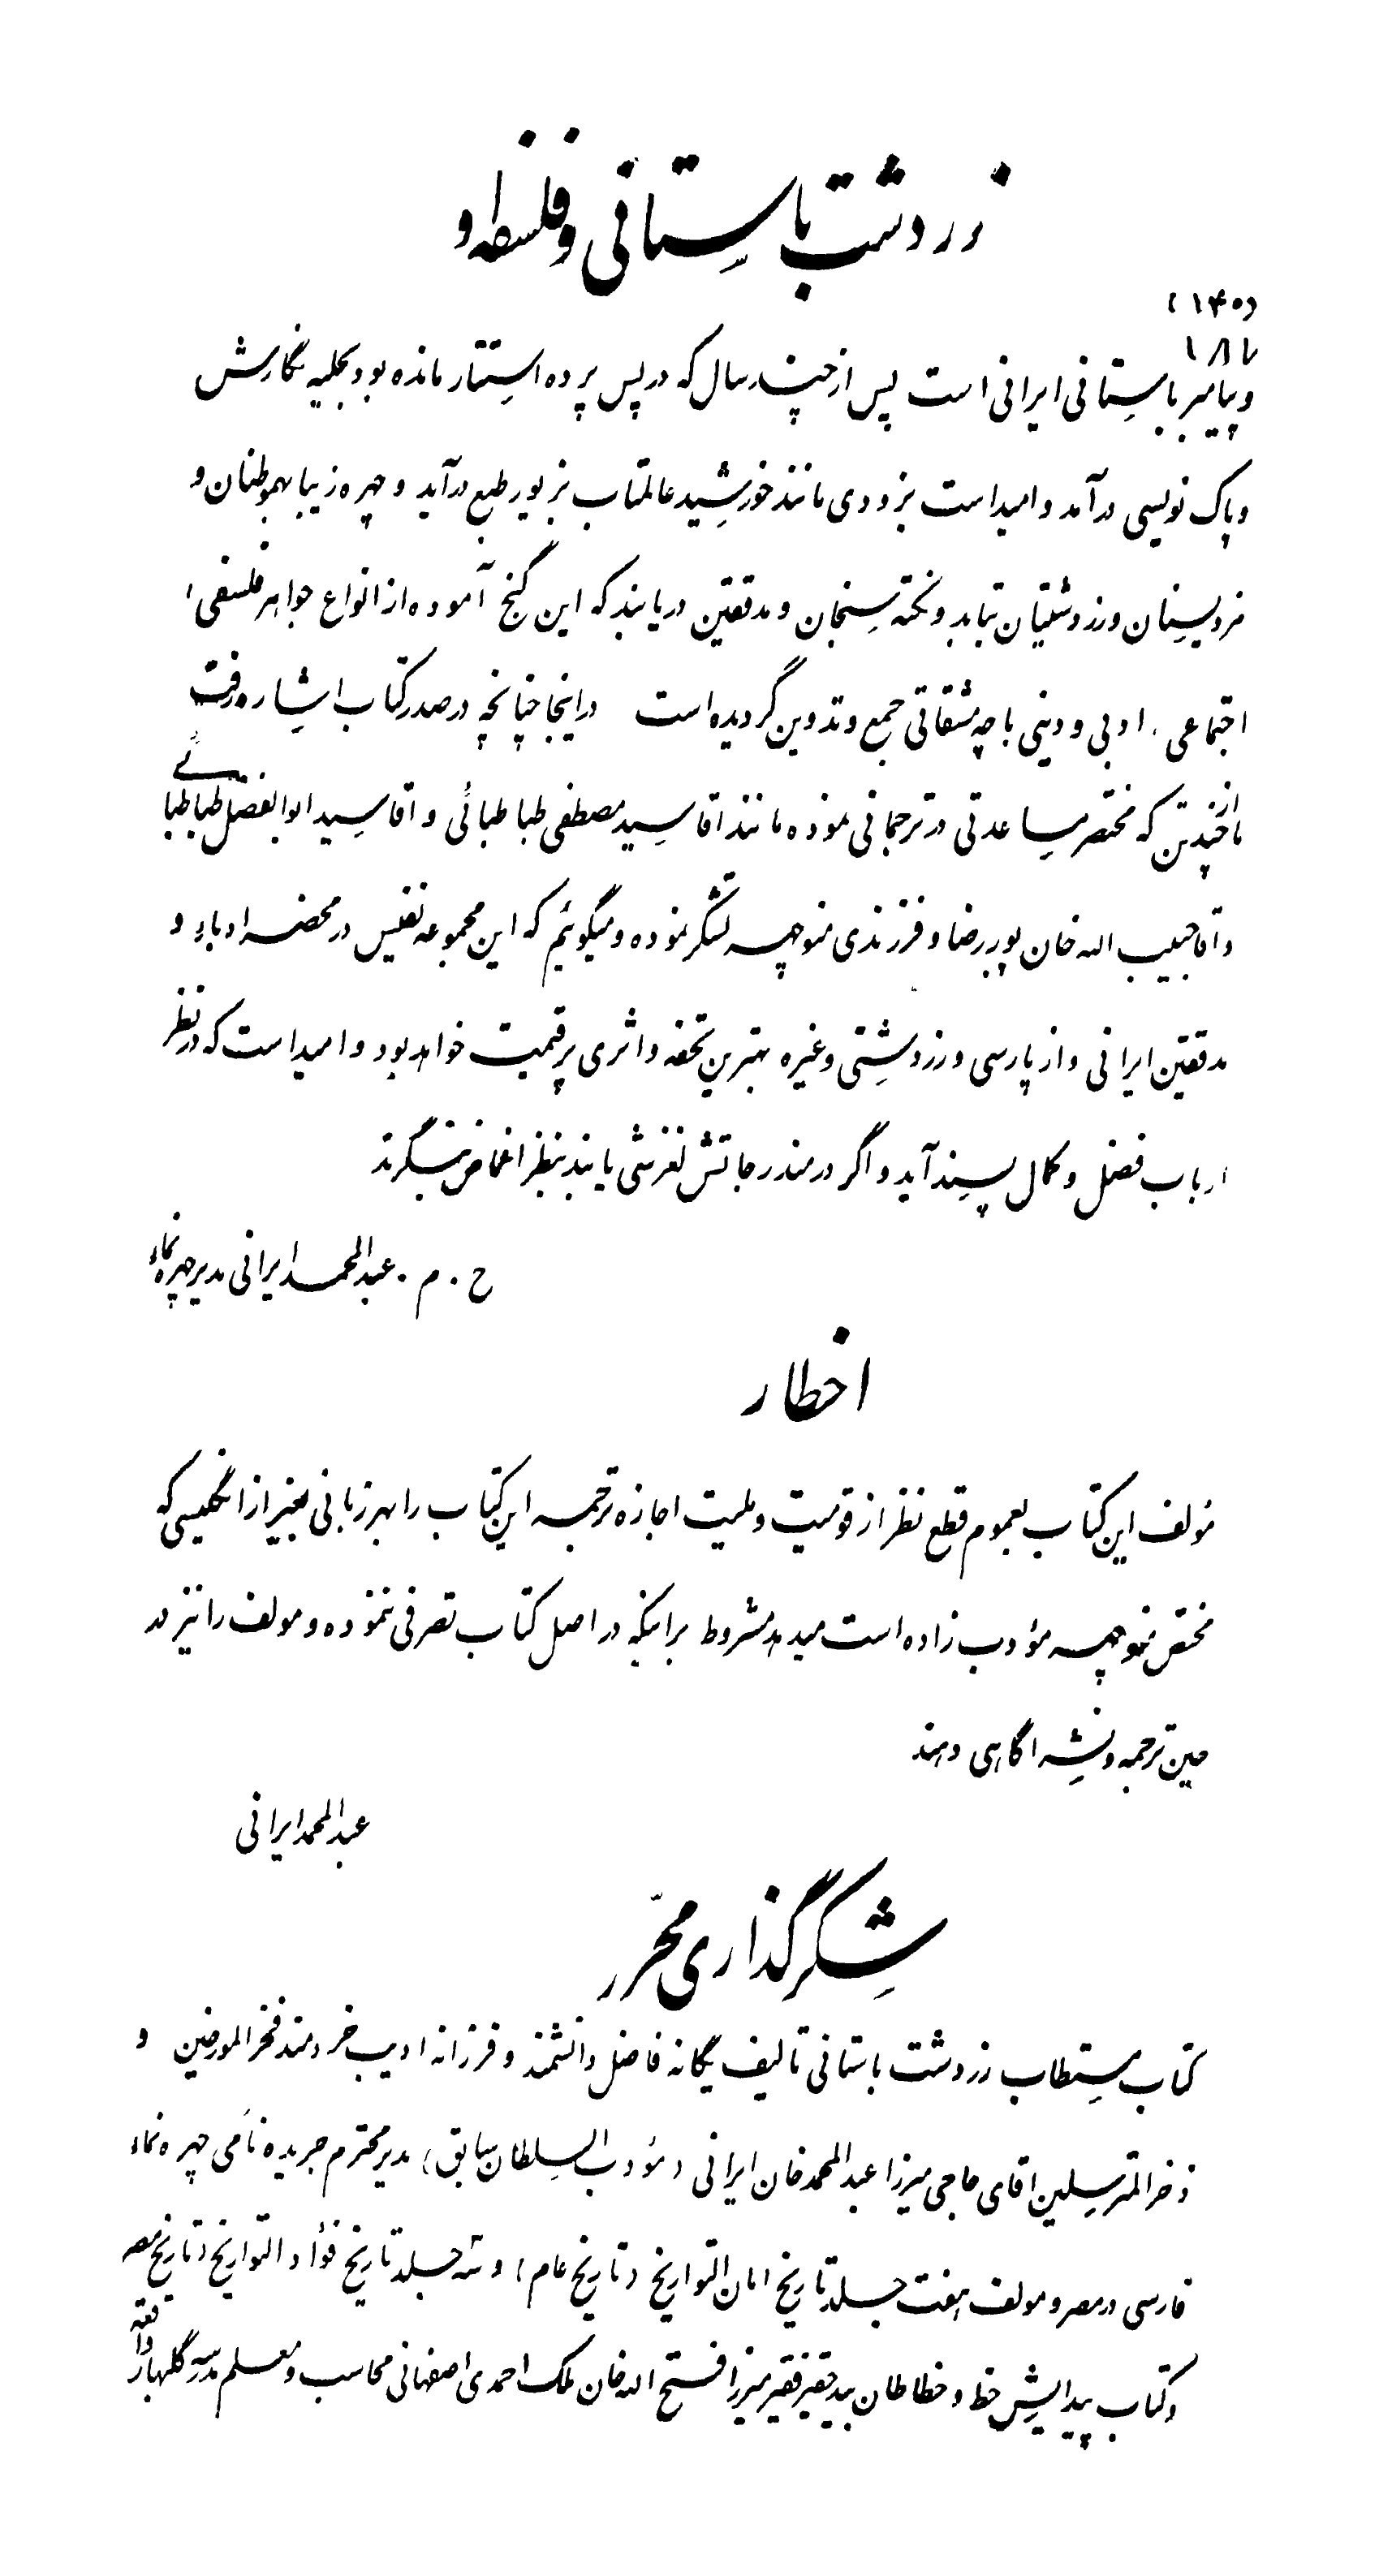 زردشت باستانی و فلسفه او
(۱۴۰)
۱۸۲
و پیامبر باستانی ایرانی است پس از چندر سال که در پس پرده استتار مانده بود بحلیه نگارش
و پاک نویسی درآمد و امید است بزودی مانند خورشید عالمتاب بزیور طبع درآید و چهره زیبا بهموطنان و
مزدیسنان و زردشتیان بتابد و نکته سنجان و مدققین دریابند که این گنج آموده از انواع جواهر فلسفی،
اجتماعی، ادبی و دینی با چه مشقاتی جمع و تدوین گردیده است در اینجا چنانچه در صدر کتاب اشاره رفت
ما از چند تن که مختصر مساعدتی در ترجمانی نموده مانند اقا سید مصطفی طباطبائی و اقا سید ابوالفضل طباطبائی
و اقا حبیب الله خان پوررضا و فرزندی منوچهر تشکر نموده و میگوئیم که این مجموعه نفیس در محضر ادباء و
مدققین ایرانی و از پارسی و زردشتی و غیره بهترین تحفه و اثری پر قیمت خواهد بود و امید است که در نظر
ارباب فضل و کمال پسند آید و اگر در مندرجاتش لغزشی یابند بنظر اغماض بنگرند
ح . م . عبدالمحمد ایرانی مدیر چهره نماء
اخطار
مؤلف این کتاب بعموم قطع نظر از قومیت و ملیت اجازه ترجمه این کتاب را بهر زبانی بغیر از انگلیسی که
مختص بمنوچهر مؤدب زاده است میدهد مشروط براینکه در اصل کتاب تصرفی ننموده و مولف را نیز در
حین ترجمه و نشر اگاهی دهند
عبدالمحمد ایرانی
شکرگذاری محرّر
کتاب مستطاب زردشت باستانی تالیف یگانه فاضل دانشمند و فرزانه ادیب خردمند فخر المورخین و
ذخر المترسلین اقای حاجی میرزا عبدالمحمد خان ایرانی (مؤدب السلطان سابق) مدیر محترم جریده نامی چهره نماء
فارسی در مصر و مولف هفت جلد تاریخ امان التواریخ (تاریخ عام) و سه جلد تاریخ فؤاد التواریخ (تاریخ مصر
و کتاب پیدایش خط و خطاطان بید حقیر فقیر میرزا فتح الله خان ملک احمدی اصفهانی محاسب و معلم مدرسه گلبهار واقعه